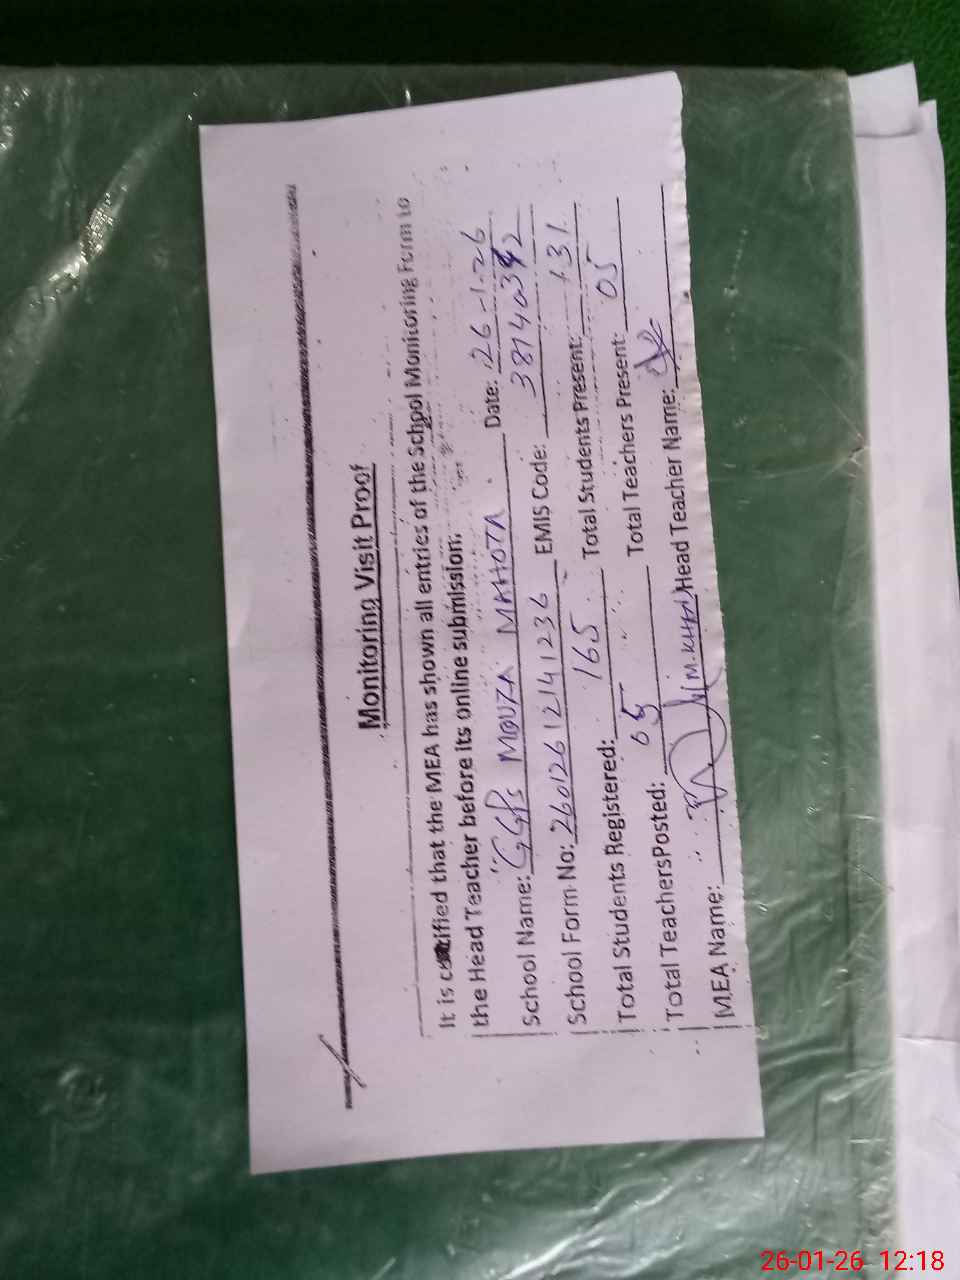 Monitoring Visit Proof
It is certified that the MEA has shown all entries of the School Monitoring Form to
the Head Teacher before its online submission.
School Name: GGPS MOUZA MAHOTA Date: 26-1-26
School Form No: 26012612141236 EMIS Code: 38140392
Total Students Registered: 165 Total Students Present: 131
Total TeachersPosted: 05 Total Teachers Present: 05
MEA Name: M.KHAN Head Teacher Name:
26-01-26 12:18